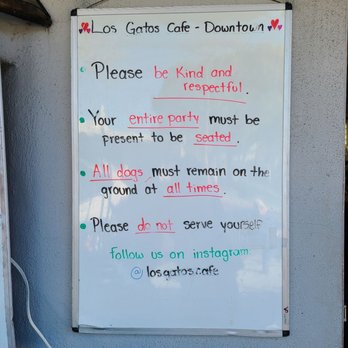 Los Gatos Cafe - Downtown
Please be Kind and
respectful.
Your entire party must be
present to be seated.
All dogs must remain on the
ground at all times.
Please do not serve yourself
Follow us on instagram:
@losgatos.cafe